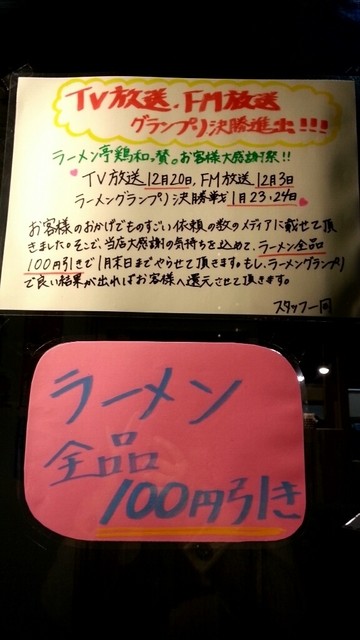 TV放送.FM放送
グランプリ決勝進出!!!
ラーメン亭鶏和っ賛。お客様大感謝祭!!
TV放送12月20日,FM放送12月3日
ラーメングランプリ決勝戦1月23,24日
お客様のおかげでものすごい依頼の数のメディアに載せて頂
きました。そこで、当店大感謝の気持ちを込めて、ラーメン全品
100円引きで1月末日までやらせて頂きます。もし、ラーメングランプリ
で良い結果が出ればお客様へ還元させて頂きます。
スタッフ一同
ラーメン
全品
100円引き